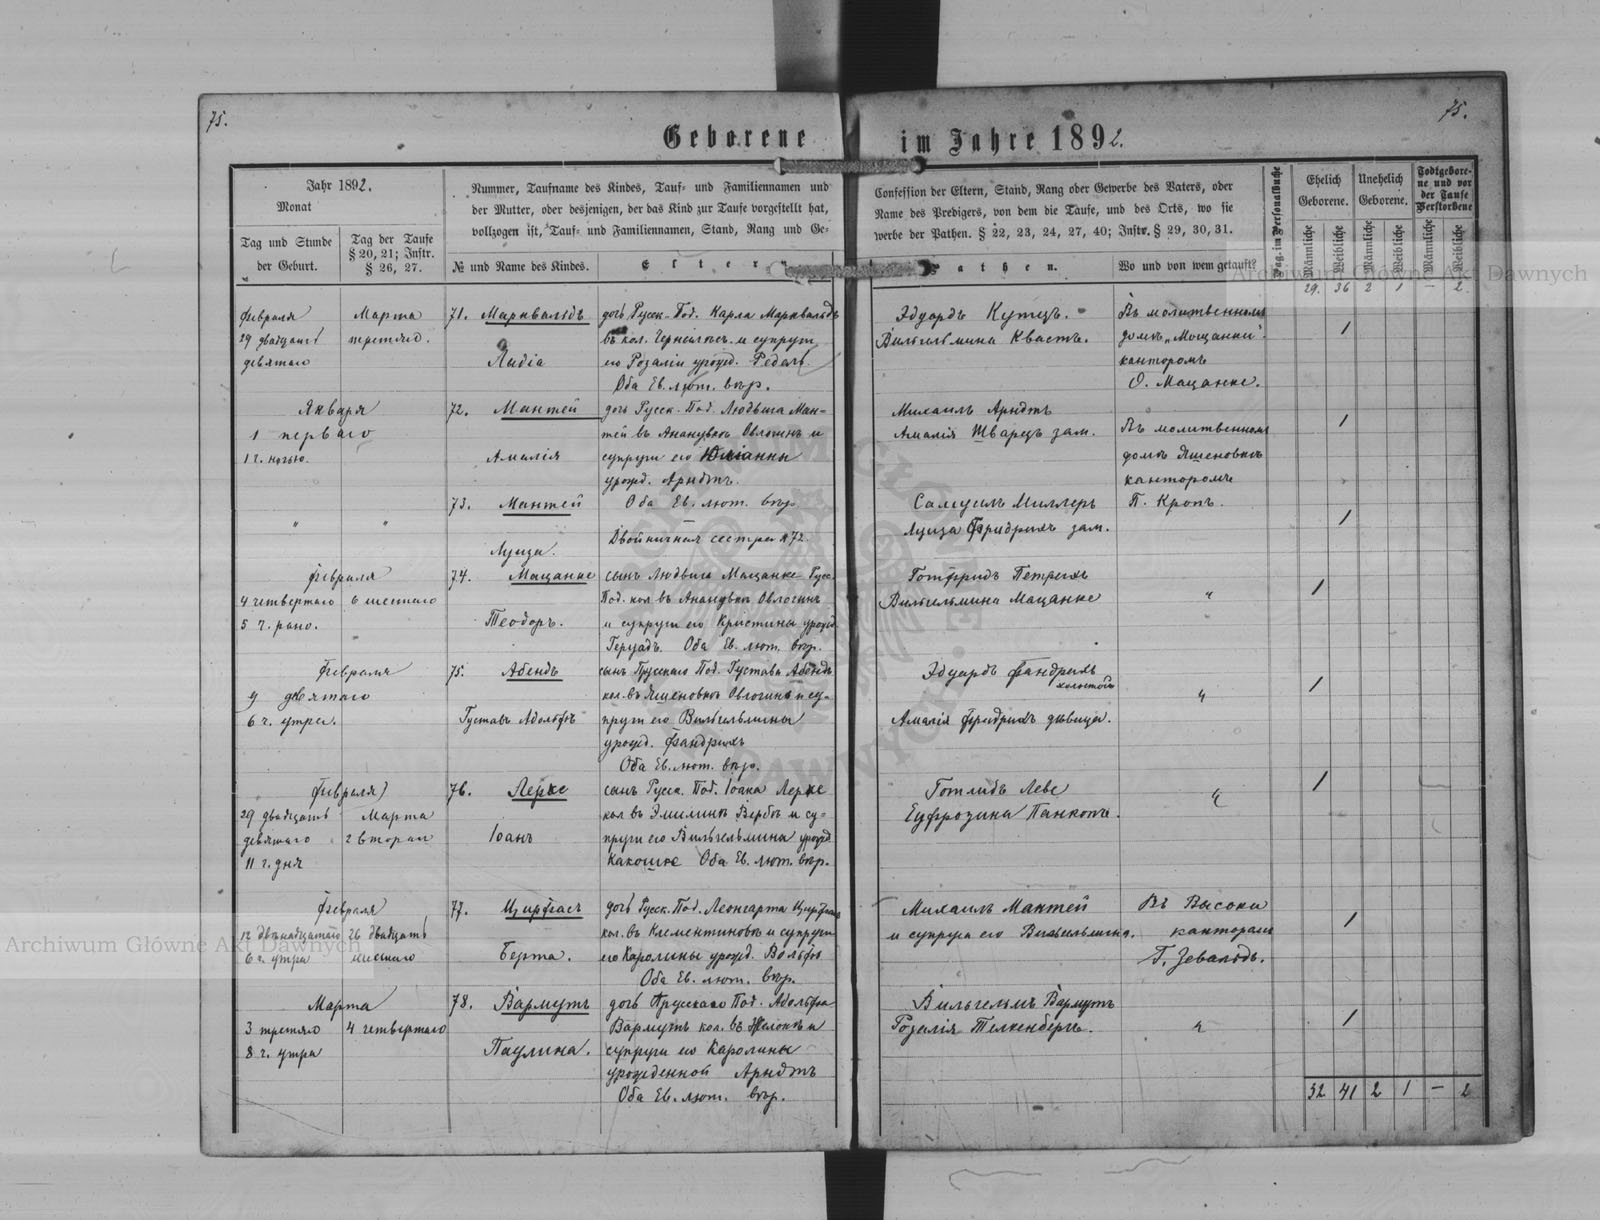 75.
75.
Geborene im Jahre 1892.
Jahr 1892.
Monat
Tag und Stunde
der Geburt.
Tag der Taufe
§ 20, 21; Instr.
§ 26, 27.
Nummer, Taufname des Kindes, Tauf- und Familiennamen und
der Mutter, oder desjenigen, der das Kind zur Taufe vorgestellt hat,
vollzogen ist, Tauf- und Familiennamen, Stand, Rang und Ge-
№ und Name des Kindes.
Eltern
Confession der Eltern, Stand, Rang oder Gewerbe des Vaters, oder
Name des Predigers, von dem die Taufe, und des Orts, wo sie
werbe der Pathen. § 22, 23, 24, 27, 40; Instr. § 29, 30, 31.
Pathen.
Wo und von wem getauft?
Pag. im Personalbuche
Ehelich
Geborene.
Unehelich
Geborene.
Todtgebore-
ne und vor
der Taufe
Verstorbene
Männliche
Weibliche
Männliche
Weibliche
Männliche
Weibliche
29. 36 2 1 — 2
Февраля
29 двадцать
девятаго
Марта
третяго.
71. Марквальдъ
Лидія
дочь Русск. Под. Карла Марквальдъ
и супруги
его Розаліи урожд. Редель
Оба Ев. лют. вѣр.
Эдуардъ Кутцъ.
Вильгельмина Квастъ.
Въ молитвенномъ
домѣ „Мощанки“.
канторомъ
О. Мацанке.
1
Января
1 перваго
1 ч. ночью.
72. Мантей
Амалія
дочь Русск. Под. Людвига Ман-
тей въ и
супруги его Юліанны
урожд. Арндтъ.
Оба Ев. лют. вѣр.
Михаилъ Арндтъ
Амалія Шварцъ зам.
Въ молитвенномъ
домѣ Яшеновкѣ
канторомъ
П. Кропъ.
1
" "
73. Мантей
Луиза.
Двойничная сестра № 72
Самуилъ Миллеръ
Луиза Фридрихъ зам.
1
Февраля
4 четвертаго
5 ч. рано.
6 шестаго
74. Мацанке
Теодоръ.
сынъ Людвига Мацанке Русс.
Под. кол. въ
и супруги его Кристины урожд.
Оба Ев. лют. вѣр.
Готфридъ
Вильгельмина Мацанке
"
1
Февраля
9 девятаго
6 ч. утра.
75. Абендъ
Густавъ Адольфъ
сынъ Прусскаго Под. Густава Абендъ
кол. въ Яшеновкѣ и су-
пруги его Вильгельмины
урожд. Фандрихъ
Оба Ев. лют. вѣр.
Эдуардъ Фандрихъ
холостой
Амалія Фридрихъ дѣвица.
"
1
Февраля
29 двадцать
девятаго
11 ч. дня
Марта
2 втораго
76. Лерке
Іоанъ
сынъ Русск. Под. Іоана Лерке
кол. въ Эмилинѣ и су-
пруги его Вильгельмина урожд.
Какошке Оба Ев. лют. вѣр.
Готлибъ Леве
Еуфрозина Панкопъ.
"
1
Февраля
12 двѣнадцатаго
6 ч. утра
26 двадцать
шестаго
77. Цирфасъ
Берта.
дочь Русск. Под. Леонгарта Цирфасъ
кол. въ Клементиновкѣ и супруги
его Каролины урожд. Вольфъ
Оба Ев. лют. вѣр.
Михаилъ Мантей
и супруга его Вильгельмина.
Въ Высоки
канторомъ
Г. Зевальдъ.
1
Марта
3 третяго
8 ч. утра
4 четвертаго
78. Вармутъ
Паулина.
дочь Прусскаго Под. Адольфа
Вармутъ кол. въ и
супруги его Каролины
урожденной Арндтъ
Оба Ев. лют. вѣр.
Вильгельмъ Вармутъ
Розалія Телкенбергъ.
"
1
32 41 2 1 — 2
Archiwum Główne Akt Dawnych
Archiwum Główne Akt Dawnych